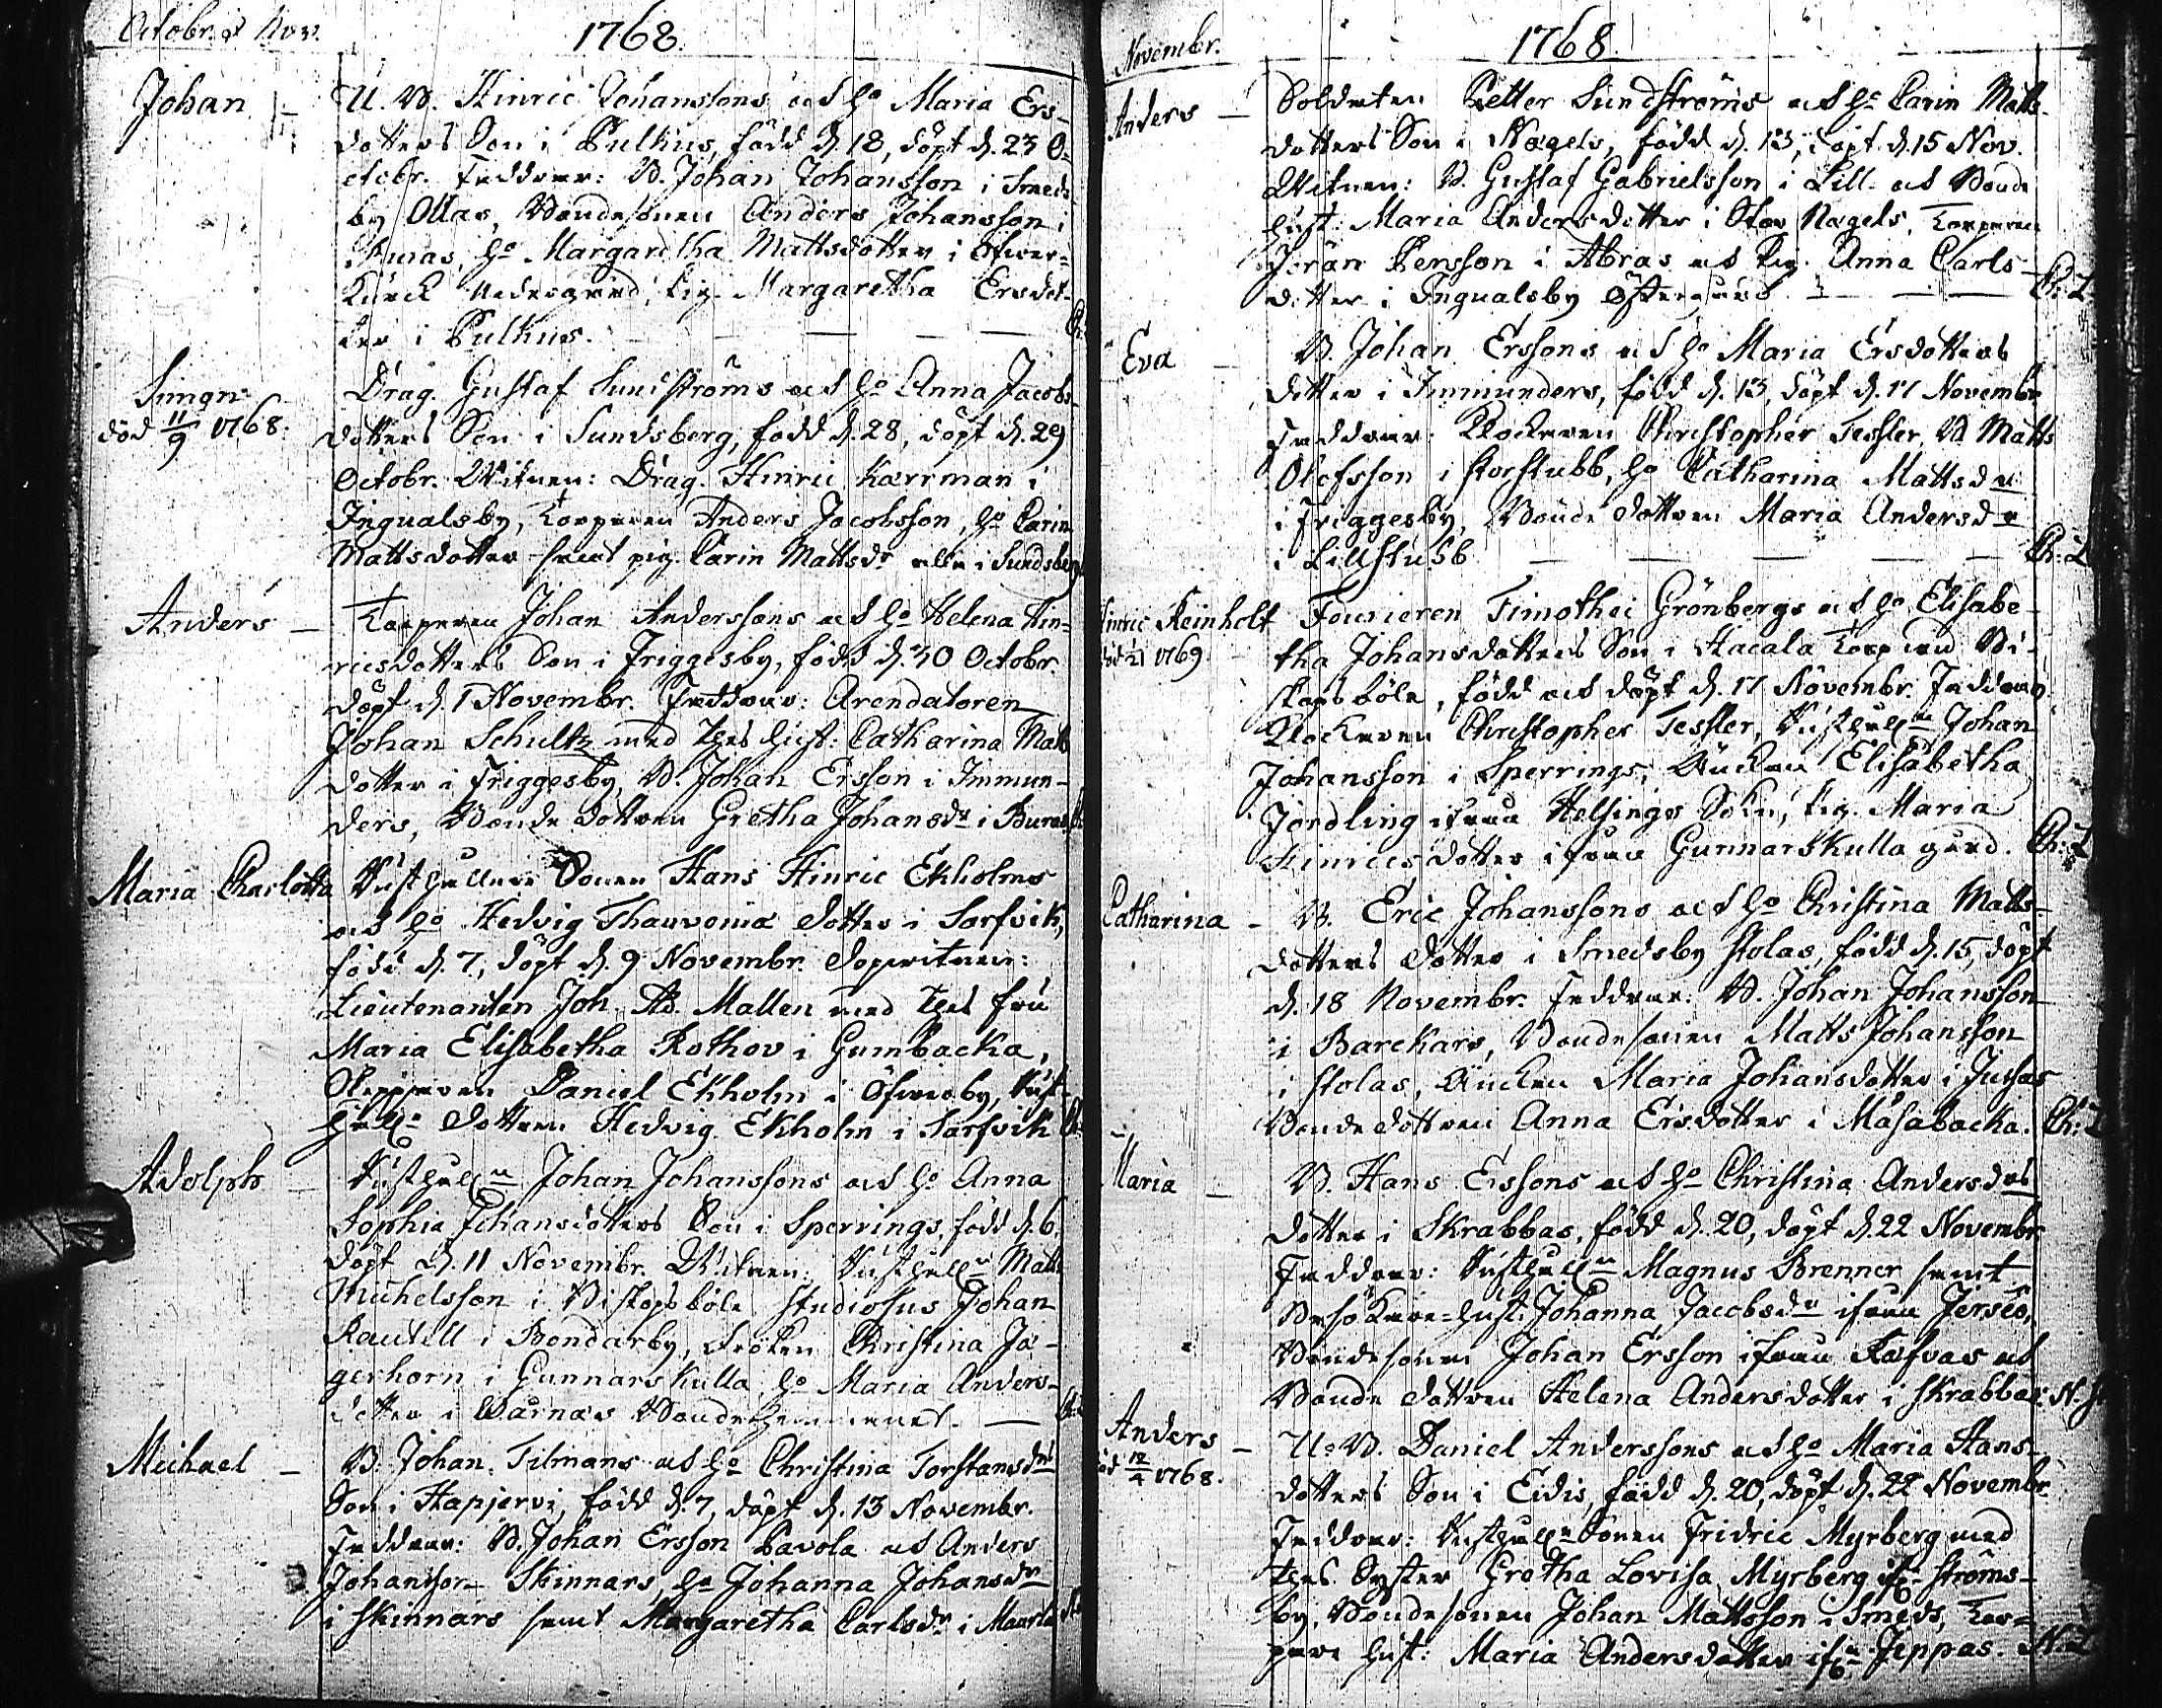 Octobr. et Nov. 1768.
Johan – U. B. Hinric Johanssons och h:o Maria Ers-
dotters Son i Pulkus, född d. 18, döpt d. 23 O-
ctobr. Faddrar: B. Johan Johansson i Smeds-
by Ollas, Bondesonen Anders Johansson i
h:o Margaretha Mattsdotter i Öfwer-
Kurck Nedergård, Pig. Margaretha Ersdot-
ter i Pulkus.
Simon Drag. Gustaf Sundströms och h:o Anna Jacobs-
död 11/9 1768. dotters Son i Sundsberg, född d. 28, döpt d. 29
Octobr. Witnen: Drag. Hinric Karrman i
Ingvalsby, Torparen Anders Jacobsson, h:o Carin
Mattsdotter samt pig. Carin Mattsdr alla i Sundsberg
Anders – Torparen Johan Anderssons och h:o Helena Hin-
ricsdotters Son i Friggesby, född d. 30 Octobr.
döpt d. 1 Novembr. Faddrar: Arendatoren
Johan Schultz med thes hust: Catharina Matts
dotter i Friggesby, B. Johan Ersson i Immun-
ders, Bonde dottren Gretha Johansdr i Buras
Maria Charlotta Rusthållare Sonen Hans Hinric Ekholms
och h:o Hedvig Thauvonia dotter i Sarfvik,
född d. 7, döpt d. 9 Novembr. Dopwitnen:
Lieutenanten Joh. Ad. Mallen med thes fru
Maria Elisabetha Rothov i Gumbacka,
Skepparen Daniel Ekholm i Öfwerby, Rust-
håll:e dottren Hedvig Ekholm i Sarfvik
Adolph – Rusthåll:n Johan Johanssons och h:o Anna
Sophia Johansdotters Son i Sperrings, född d. 6,
döpt d. 11 Novembr. Witnen: Rusthåll:n Matts
Michelsson i Biskopsböle, Studiosus Johan
Rautell i Bondarby, Fröken Christina Jä-
gerhorn i Gunnarskulla, h:o Maria Anders-
dotter i Bondehemmanet. –
Michael – B. Johan Tilmans och h:o Christina Torstansdrs
Son i Hapjervi, född d. 7, döpt d. 13 Novembr.
Faddrar: B. Johan Ersson Pavola och Anders
Johansson Skinnars, h:o Johanna Johansdr
i Skinnars samt Margaretha Carlsdr i Maarla
Novembr. 1768.
Anders – Soldaten Petter Sundströms och h:o Carin Matts-
dotters Son i Nagels, född d. 13, döpt d. 15 Nov.
Witnen: B. Gustaf Gabrielsson i Lill- och Bonde
hust: Maria Andersdotter i Stor Nagels, Torparen
Jöran Persson i Abras och Pig. Anna Carls-
dotter i Ingvalsby Östergård. – Ch: L
Eva B. Johan Erssons och h:o Maria Ersdotters
dotter i Immunders, född d. 13, döpt d. 17 Novembr.
Faddrar: Klockaren Christopher Tessler, B. Matts
Olofsson i Storstubb, h:o Catharina Mattsdr
i Friggesby, Bonde dottren Maria Andersdr
i Lillstubb – Ch: L
Hinric Reinholt Fourieren Timothei Grönbergs och h:o Elisabe-
1769. tha Johansdotters Son i Hacala Torp wid Bi-
skopsböle, född och döpt d. 17 Novembr. Faddrar:
Klockaren Christopher Tessler, Rusthåll:n Johan
Johansson i Sperrings, Änckan Elisabetha
Jördling ifrån Helsinge Sokn, Pig. Maria
Hinricsdotter ifrån Gunnarskulla gård. Ch: L
Catharina – B. Eric Johanssons och h:o Christina Matts-
dotters dotter i Smedsby Stolas, född d. 15, döpt
d. 18 Novembr. Faddrar: B. Johan Johansson
i Barckars, Bondesonen Matts Johansson
i Stolas, Änckan Maria Johansdotter i Jussas
Bonde dottren Anna Ersdotter i Måsabacka. Ch: L
Maria – B. Hans Erssons och h:o Christina Andersdrs
dotter i Skrabbas, född d. 20, döpt d. 22 Novembr
Faddrar: Rusthåll:n Magnus Brenner samt
Besökare-hust. Johanna Jacobsdr ifrån Jersö,
Bondesonen Johan Ersson ifrån Rafvas och
Bonde dottren Helena Andersdotter i Skrabbas. N.
Anders – U. B. Daniel Anderssons och h:o Maria Hans-
död 12/4 1768. dotters Son i Eidis, född d. 20, döpt d. 22 Novembr
Faddrar: Rusthåll:e Sonen Fridric Myrberg med
thes Syster Gretha Lovisa Myrberg ifr. Ströms-
by, Bondesonen Johan Mattsson i Smeds, Tor-
pare hust: Maria Andersdotter ifr:n Jeppas. N. L